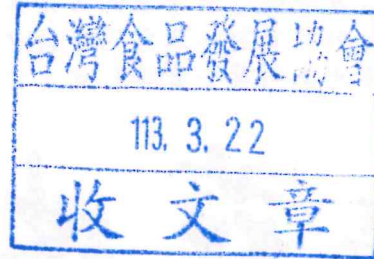 台灣食品發展協會
113. 3. 22
收文章